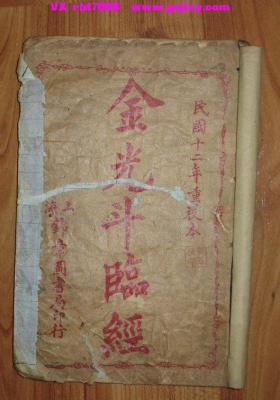 VX
民國十二年重校本
金光斗臨經
上海錦章圖書局印行